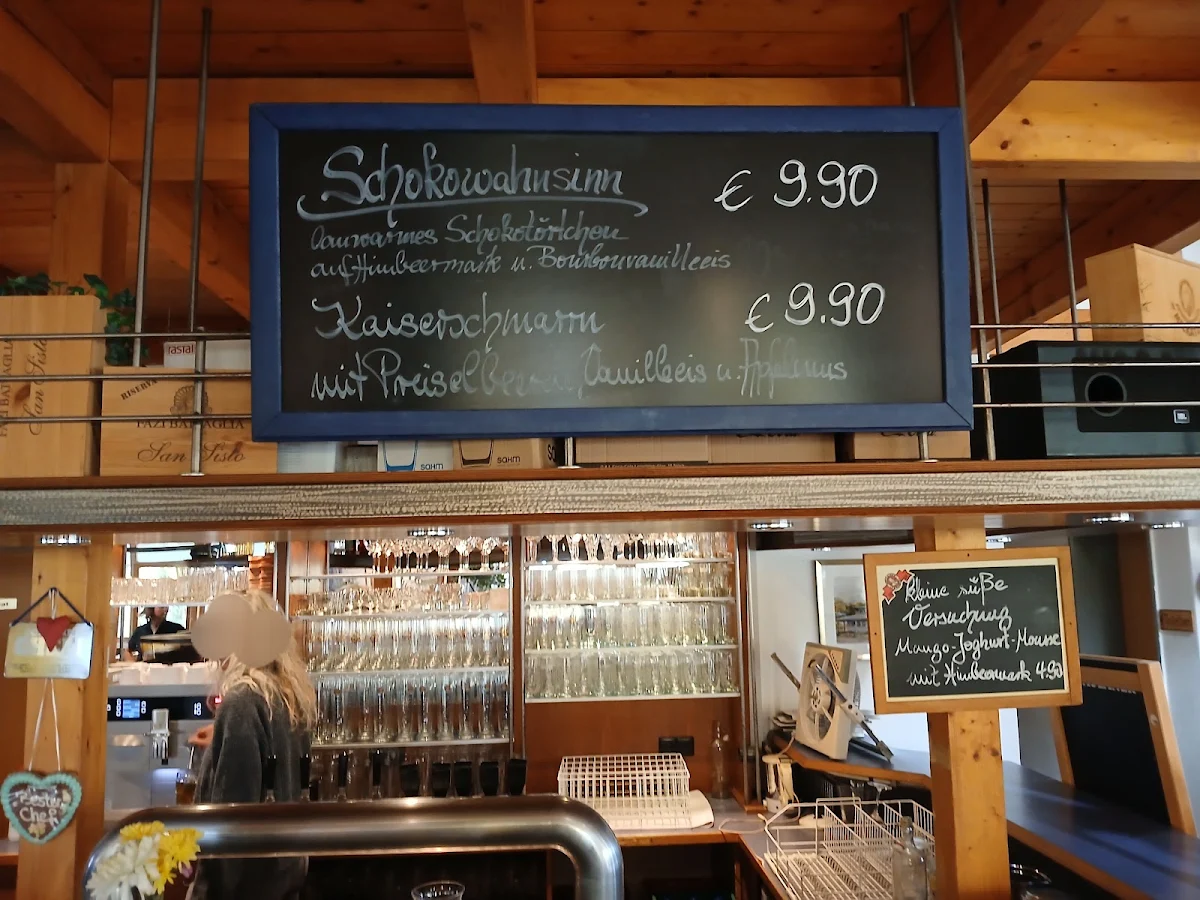 Schokowahnsinn € 9.90
Lauwarmes Schokotörtchen
auf Himbeermark u. Bourbonvanilleeis
Kaiserschmarrn € 9.90
mit Preiselbeeren, Vanilleeis u. Apfelmus
rastal
RISERVA
FAZI BATTAGLIA
San Sisto
FAZI BATTAGLIA
San Sisto
sahm
sahm
JBL
kleine süße
Versuchung
Mango-Joghurt-Mousse
mit Himbeermark 4.90
Bester
Chef